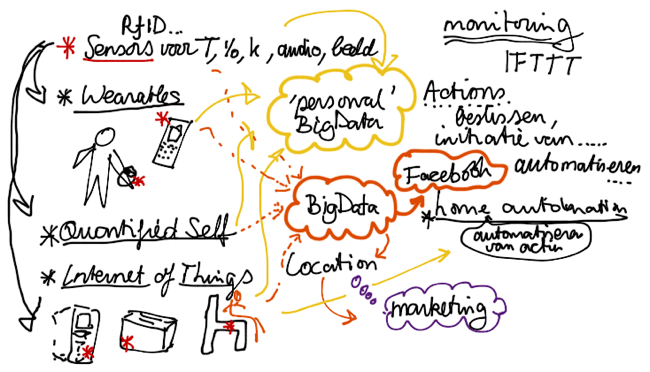 RfID...
* Sensors voor T, %, k, audio, beeld
* Wearables
* Quantified Self
* Internet of Things
'personal'
BigData
BigData
Location
marketing
Facebook
monitoring
IFTTT
Actions
beslissen,
initiatie van.....
automatiseren
....
* home automation
automatiseren
van actie